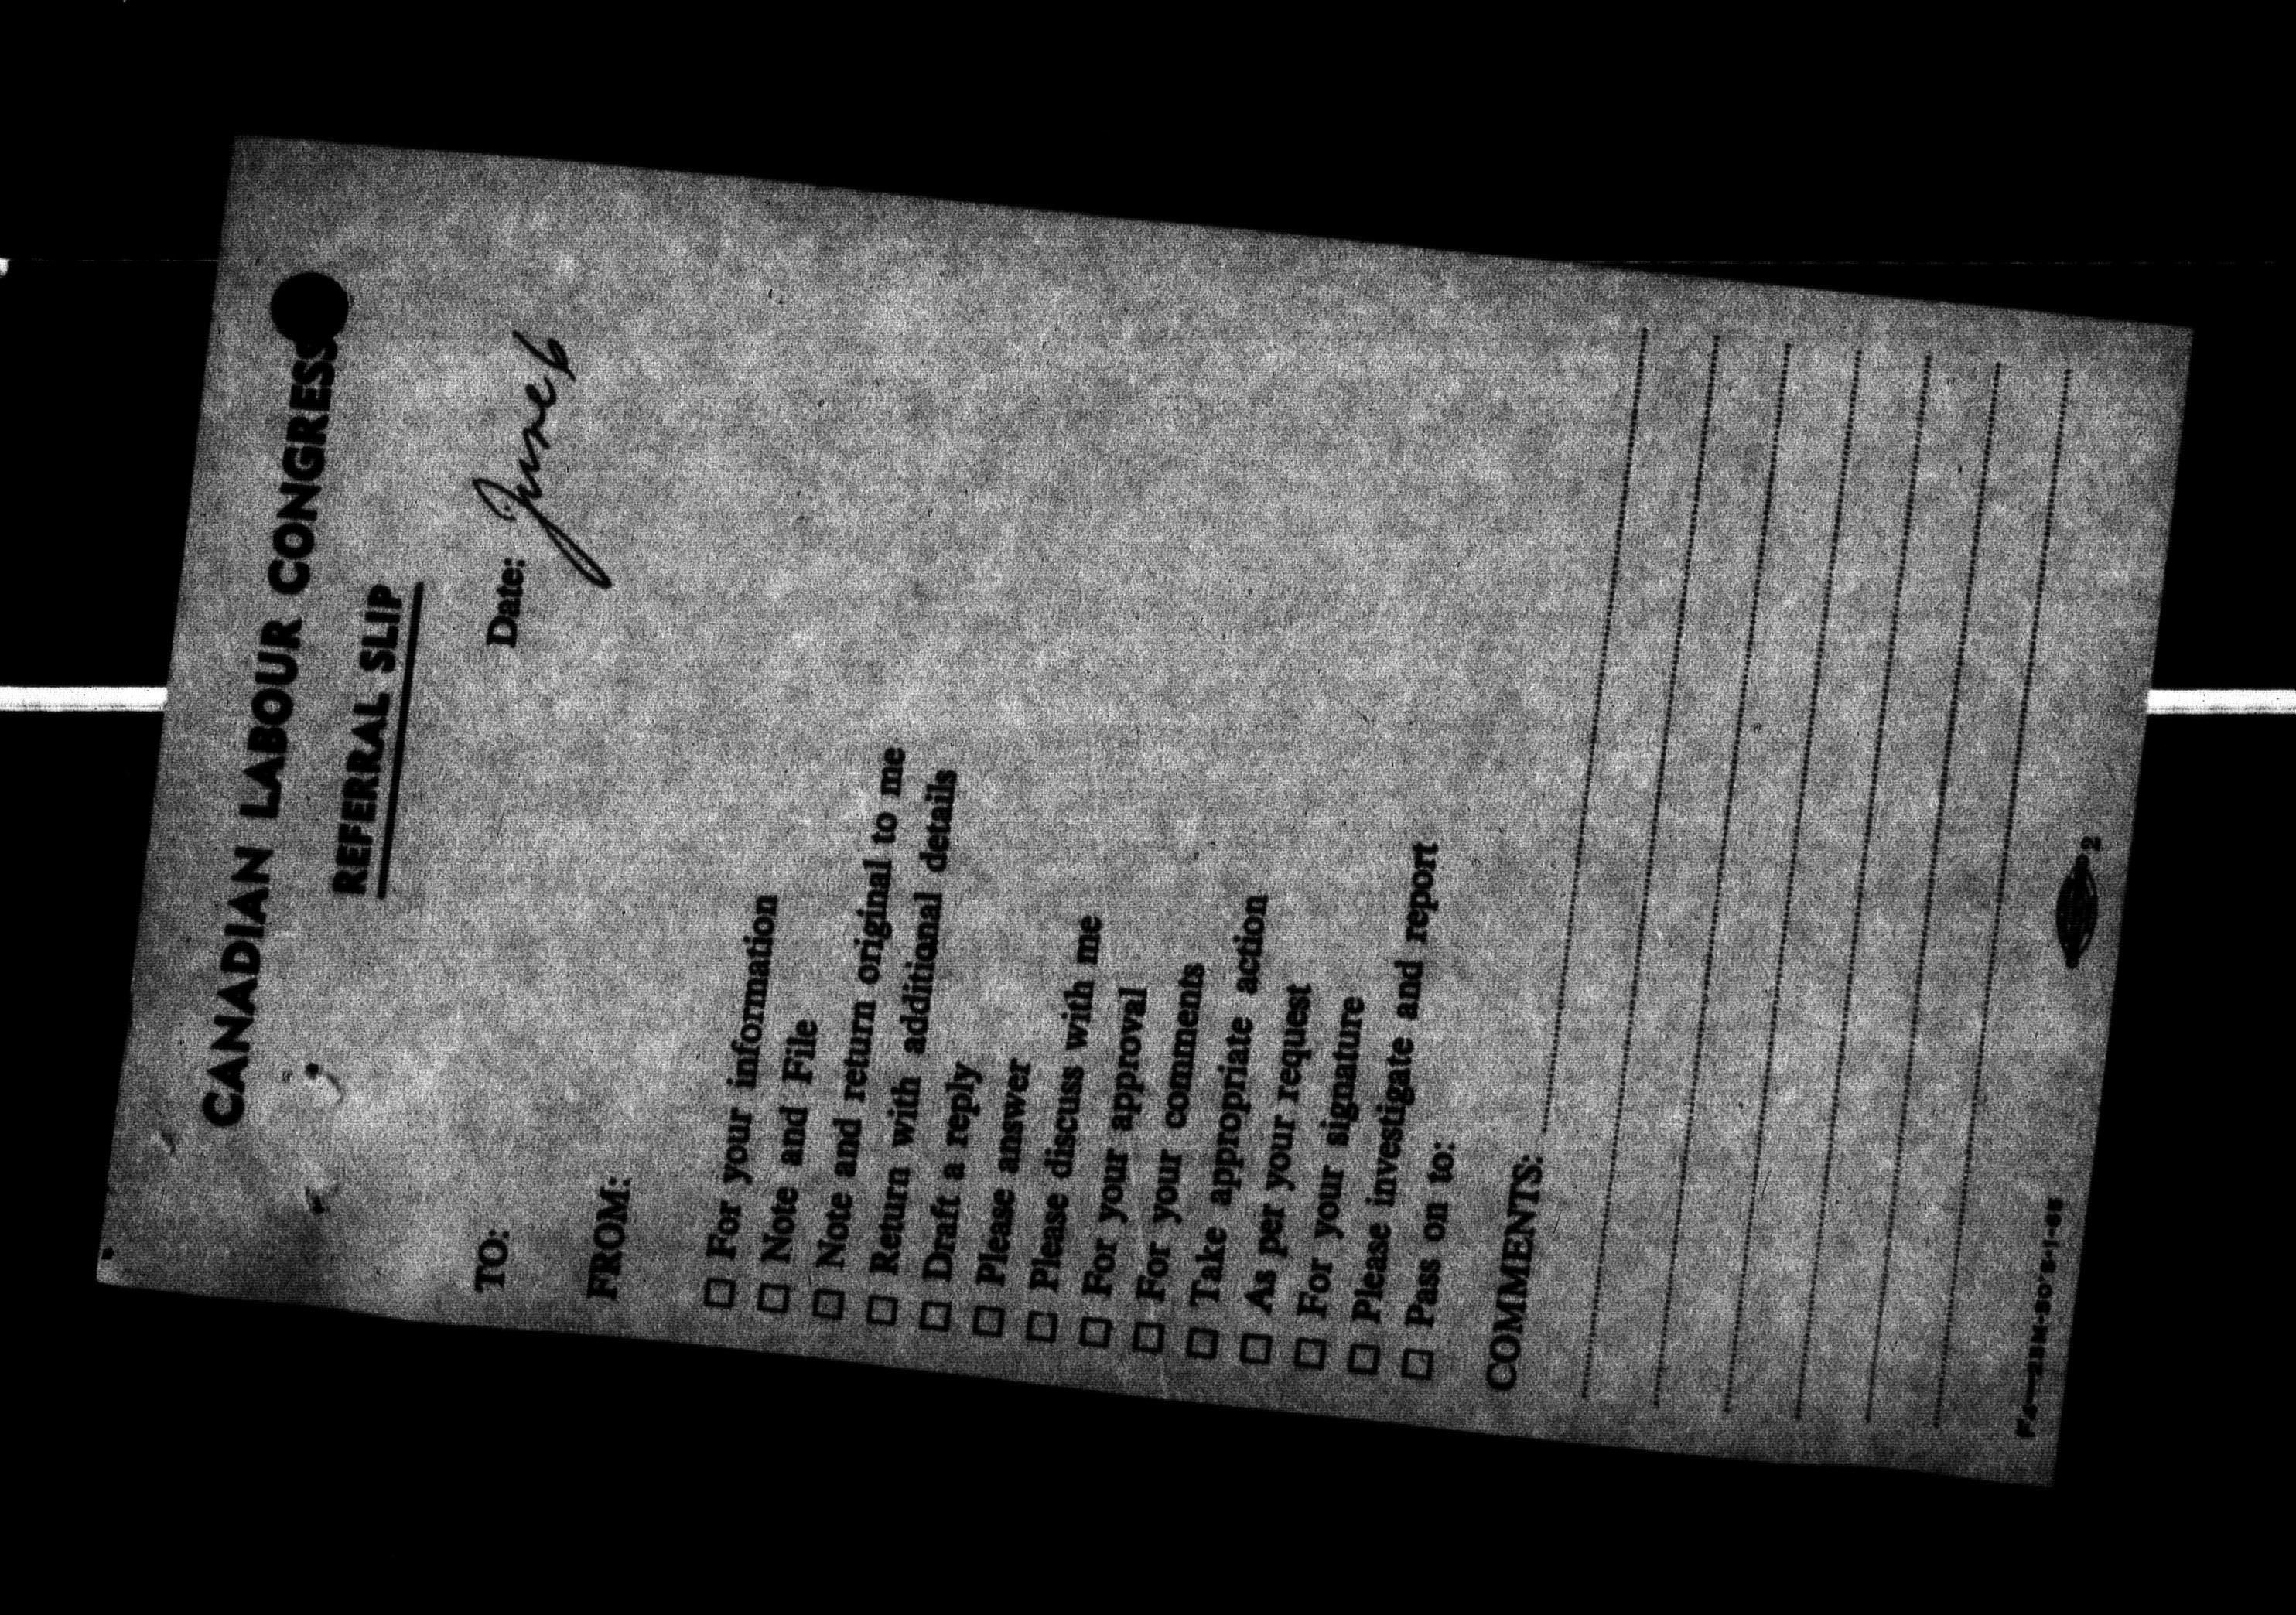 CANADIAN LABOUR CONGRESS
REFERRAL SLIP
Date: June 6
TO:
FROM:
☐ For your information
☐ Note and File
☐ Note and return original to me
☐ Return with additional details
☐ Draft a reply
☐ Please answer
☐ Please discuss with me
☐ For your approval
☐ For your comments
☐ Take appropriate action
☐ As per your request
☐ For your signature
☐ Please investigate and report
☐ Pass on to:
COMMENTS:
2